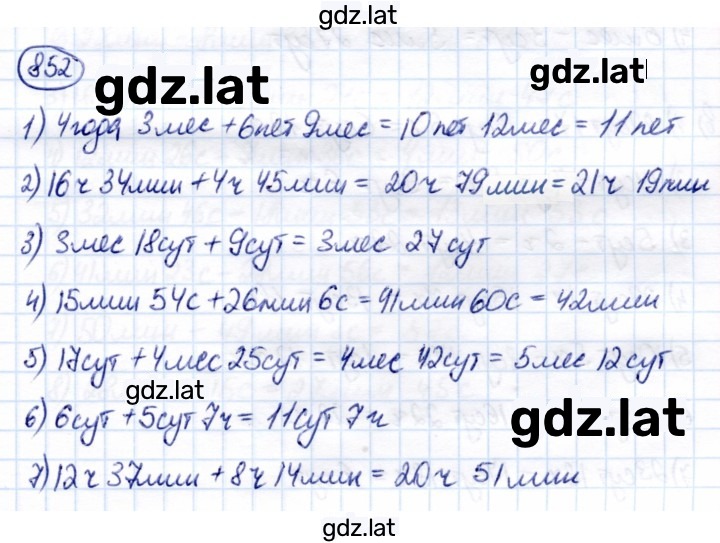 gdz.lat
852
gdz.lat
gdz.lat
1) 4 года 3 мес + 6 лет 9 мес = 10 лет 12 мес = 11 лет
2) 16 ч 34 мин + 4 ч 45 мин = 20 ч 79 мин = 21 ч 19 мин
3) 3 мес 18 сут + 9 сут = 3 мес 27 сут
4) 15 мин 54 с + 26 мин 6 с = 41 мин 60 с = 42 мин
5) 17 сут + 4 мес 25 сут = 4 мес 42 сут = 5 мес 12 сут
gdz.lat
gdz.lat
6) 6 сут + 5 сут 7 ч = 11 сут 7 ч
7) 12 ч 37 мин + 8 ч 14 мин = 20 ч 51 мин
gdz.lat